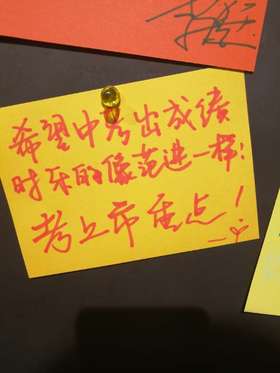 希望中考出成绩
时乐的像范进一样!
考上市重点!